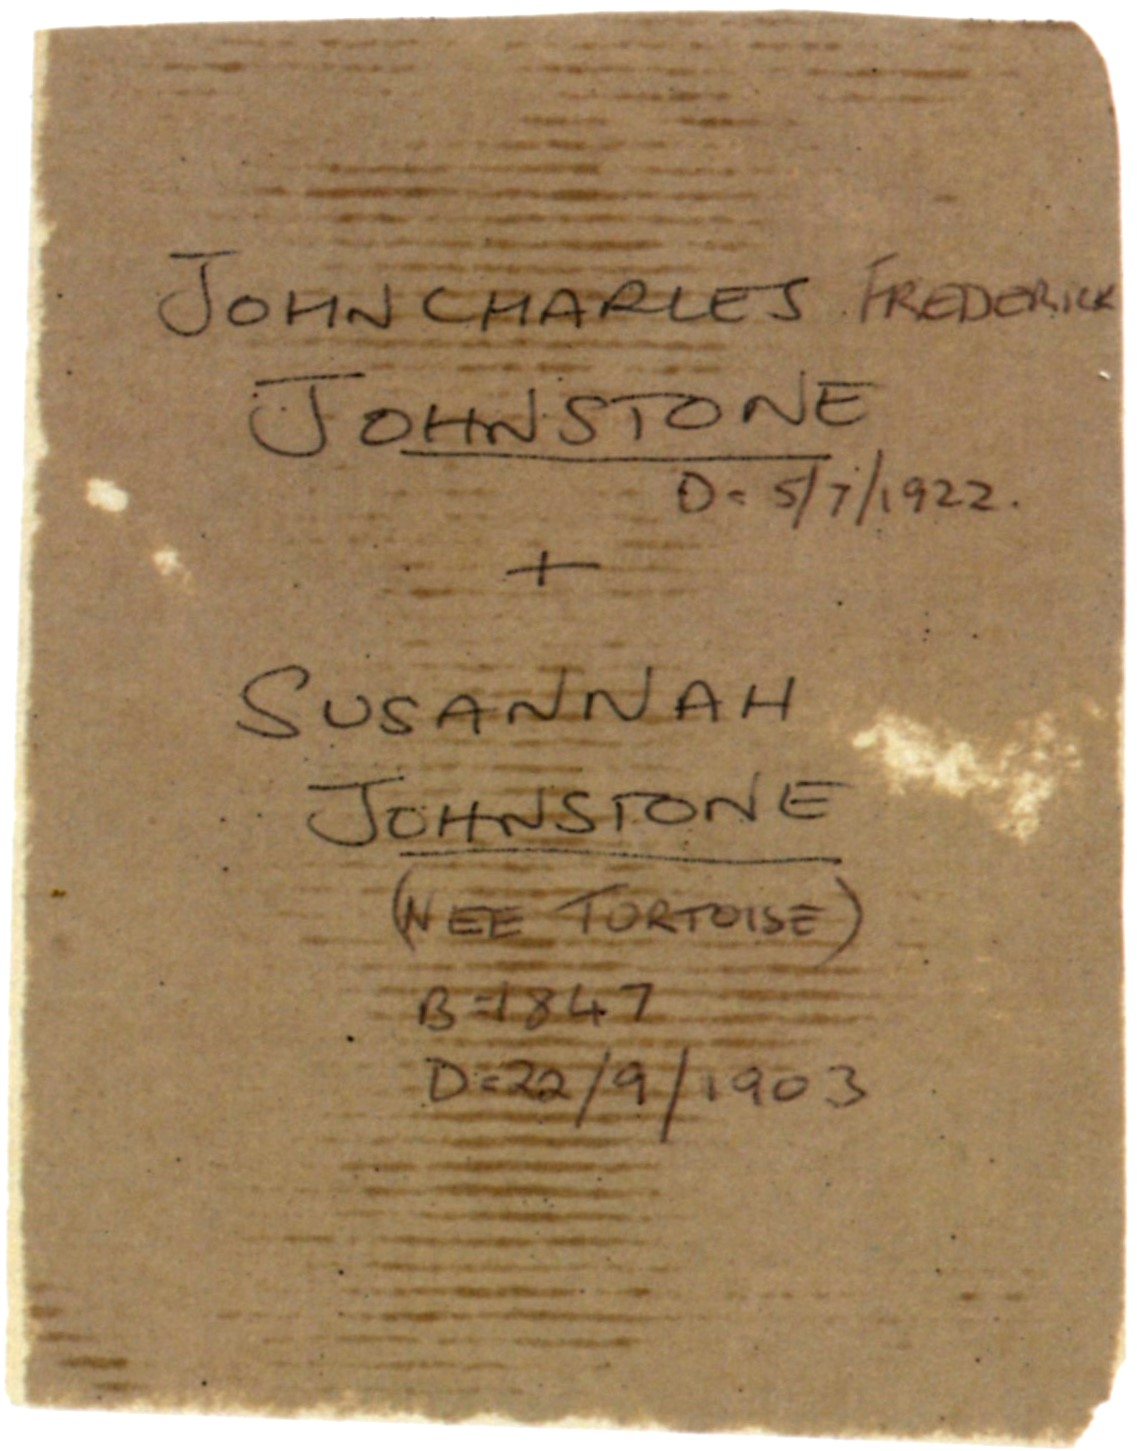 JOHN CHARLES FREDERICK
JOHNSTONE
D= 5/7/1922.
+
SUSANNAH
JOHNSTONE
(NEE TORTOISE)
B=1847
D=22/9/1903